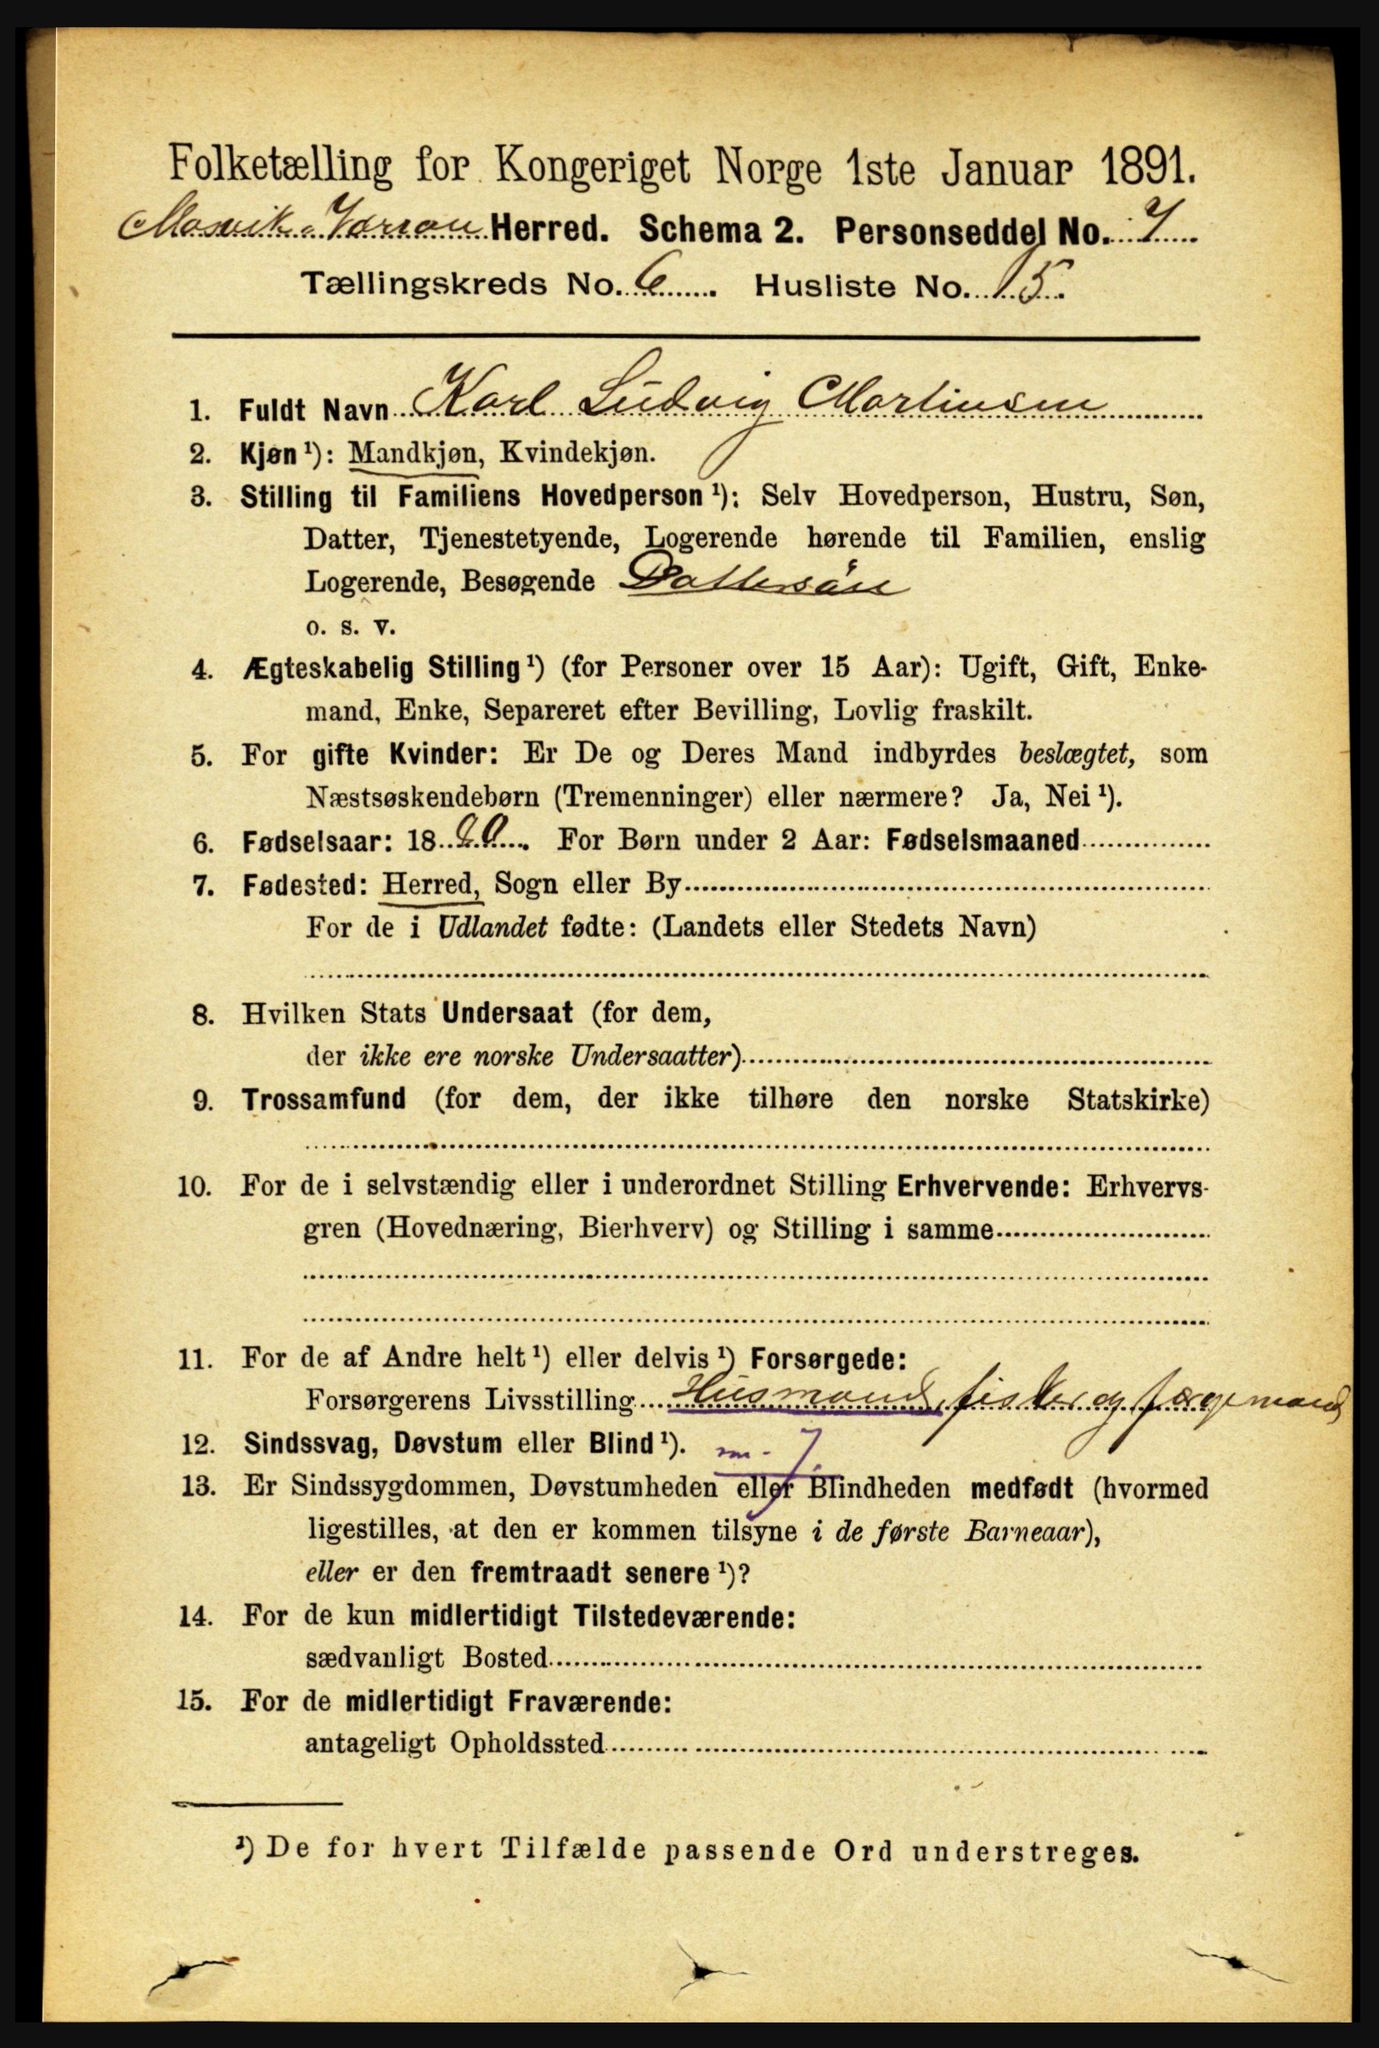 Folketælling for Kongeriget Norge 1ste Januar 1891.
Mosvik o Verran Herred. Schema 2. Personseddel No. 7
Tællingskreds No. 6. Husliste No. 15.
1. Fuldt Navn Karl Ludvig Martinsen
2. Kjøn ¹): Mandkjøn, Kvindekjøn.
3. Stilling til Familiens Hovedperson ¹): Selv Hovedperson, Hustru, Søn,
Datter, Tjenestetyende, Logerende hørende til Familien, enslig
Logerende, Besøgende Dattersøn
o. s. v.
4. Ægteskabelig Stilling ¹) (for Personer over 15 Aar): Ugift, Gift, Enke-
mand, Enke, Separeret efter Bevilling, Lovlig fraskilt.
5. For gifte Kvinder: Er De og Deres Mand indbyrdes beslægtet, som
Næstsøskendebørn (Tremenninger) eller nærmere? Ja, Nei ¹).
6. Fødselsaar: 18 . For Børn under 2 Aar: Fødselsmaaned
7. Fødested: Herred, Sogn eller By
For de i Udlandet fødte: (Landets eller Stedets Navn)
8. Hvilken Stats Undersaat (for dem,
der ikke ere norske Undersaatter)
9. Trossamfund (for dem, der ikke tilhøre den norske Statskirke)
10. For de i selvstændig eller i underordnet Stilling Erhvervende: Erhvervs-
gren (Hovednæring, Bierhverv) og Stilling i samme
11. For de af Andre helt ¹) eller delvis ¹) Forsørgede:
Forsørgerens Livsstilling Husmand, fisker og færgemand
12. Sindssvag, Døvstum eller Blind ¹). m. 7.
13. Er Sindssygdommen, Døvstumheden eller Blindheden medfødt (hvormed
ligestilles, at den er kommen tilsyne i de første Barneaar),
eller er den fremtraadt senere ¹)?
14. For de kun midlertidigt Tilstedeværende:
sædvanligt Bosted
15. For de midlertidigt Fraværende:
antageligt Opholdssted
¹) De for hvert Tilfælde passende Ord understreges.